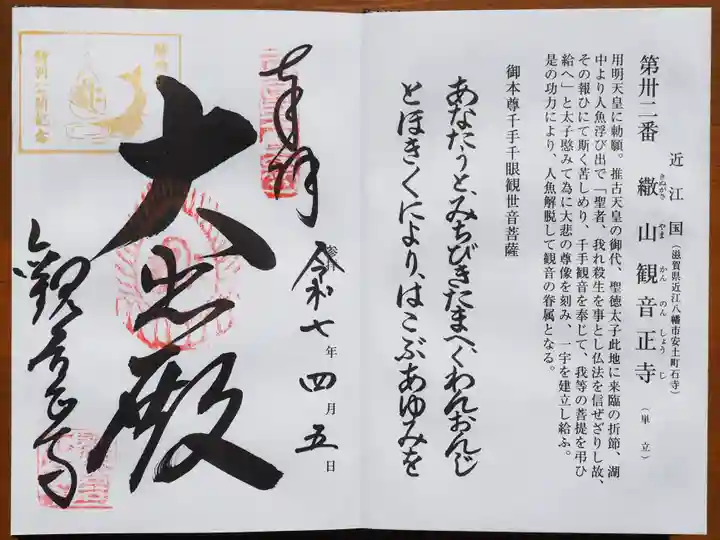 第卅二番
近江国(滋賀県近江八幡市安土町石寺)
繖山観音正寺(単立)
きぬがさ やま かん のん しょう じ
用明天皇に勅願。推古天皇の御代、聖徳太子此地に来臨の折節、湖
中より人魚浮び出で「聖者、我れ殺生を事とし仏法を信ぜざりし故、
その報ひにて斯く苦しめり、千手観音を奉じて、我等の菩提を弔ひ
給へ」と太子愍みて為に大悲の尊像を刻み、一宇を建立し給ふ。
是の功力により、人魚解脱して観音の眷属となる。
御本尊千手千眼観世音菩薩
あなたうと、みちびきたまへ、くわんおんじ
とほきくにより、はこぶあゆみを
奉拝
令和七年四月五日
大悲殿
観音正寺
特別公開記念